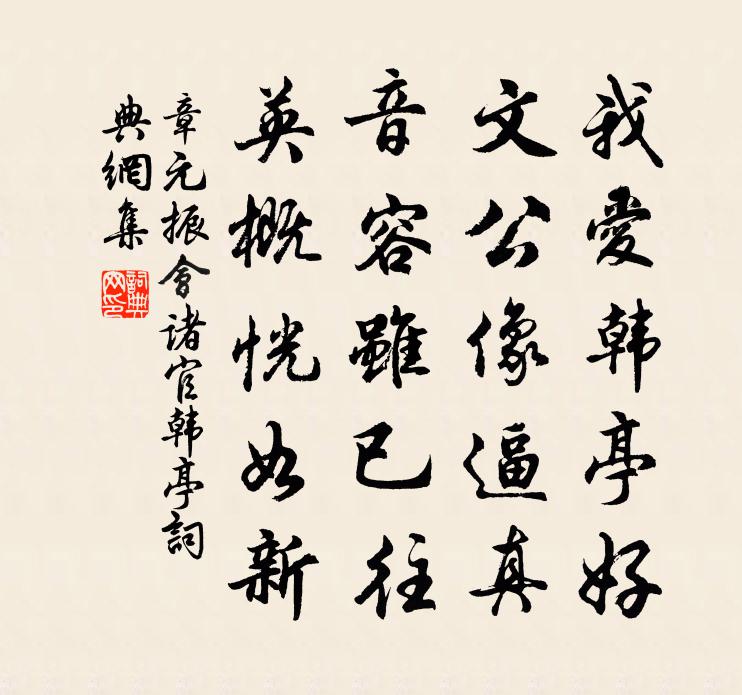 我愛韩亭好
文公像逼真
音容雖已往
英概恍如新
章元振會诸官韩亭詞
典網集
詞典網印